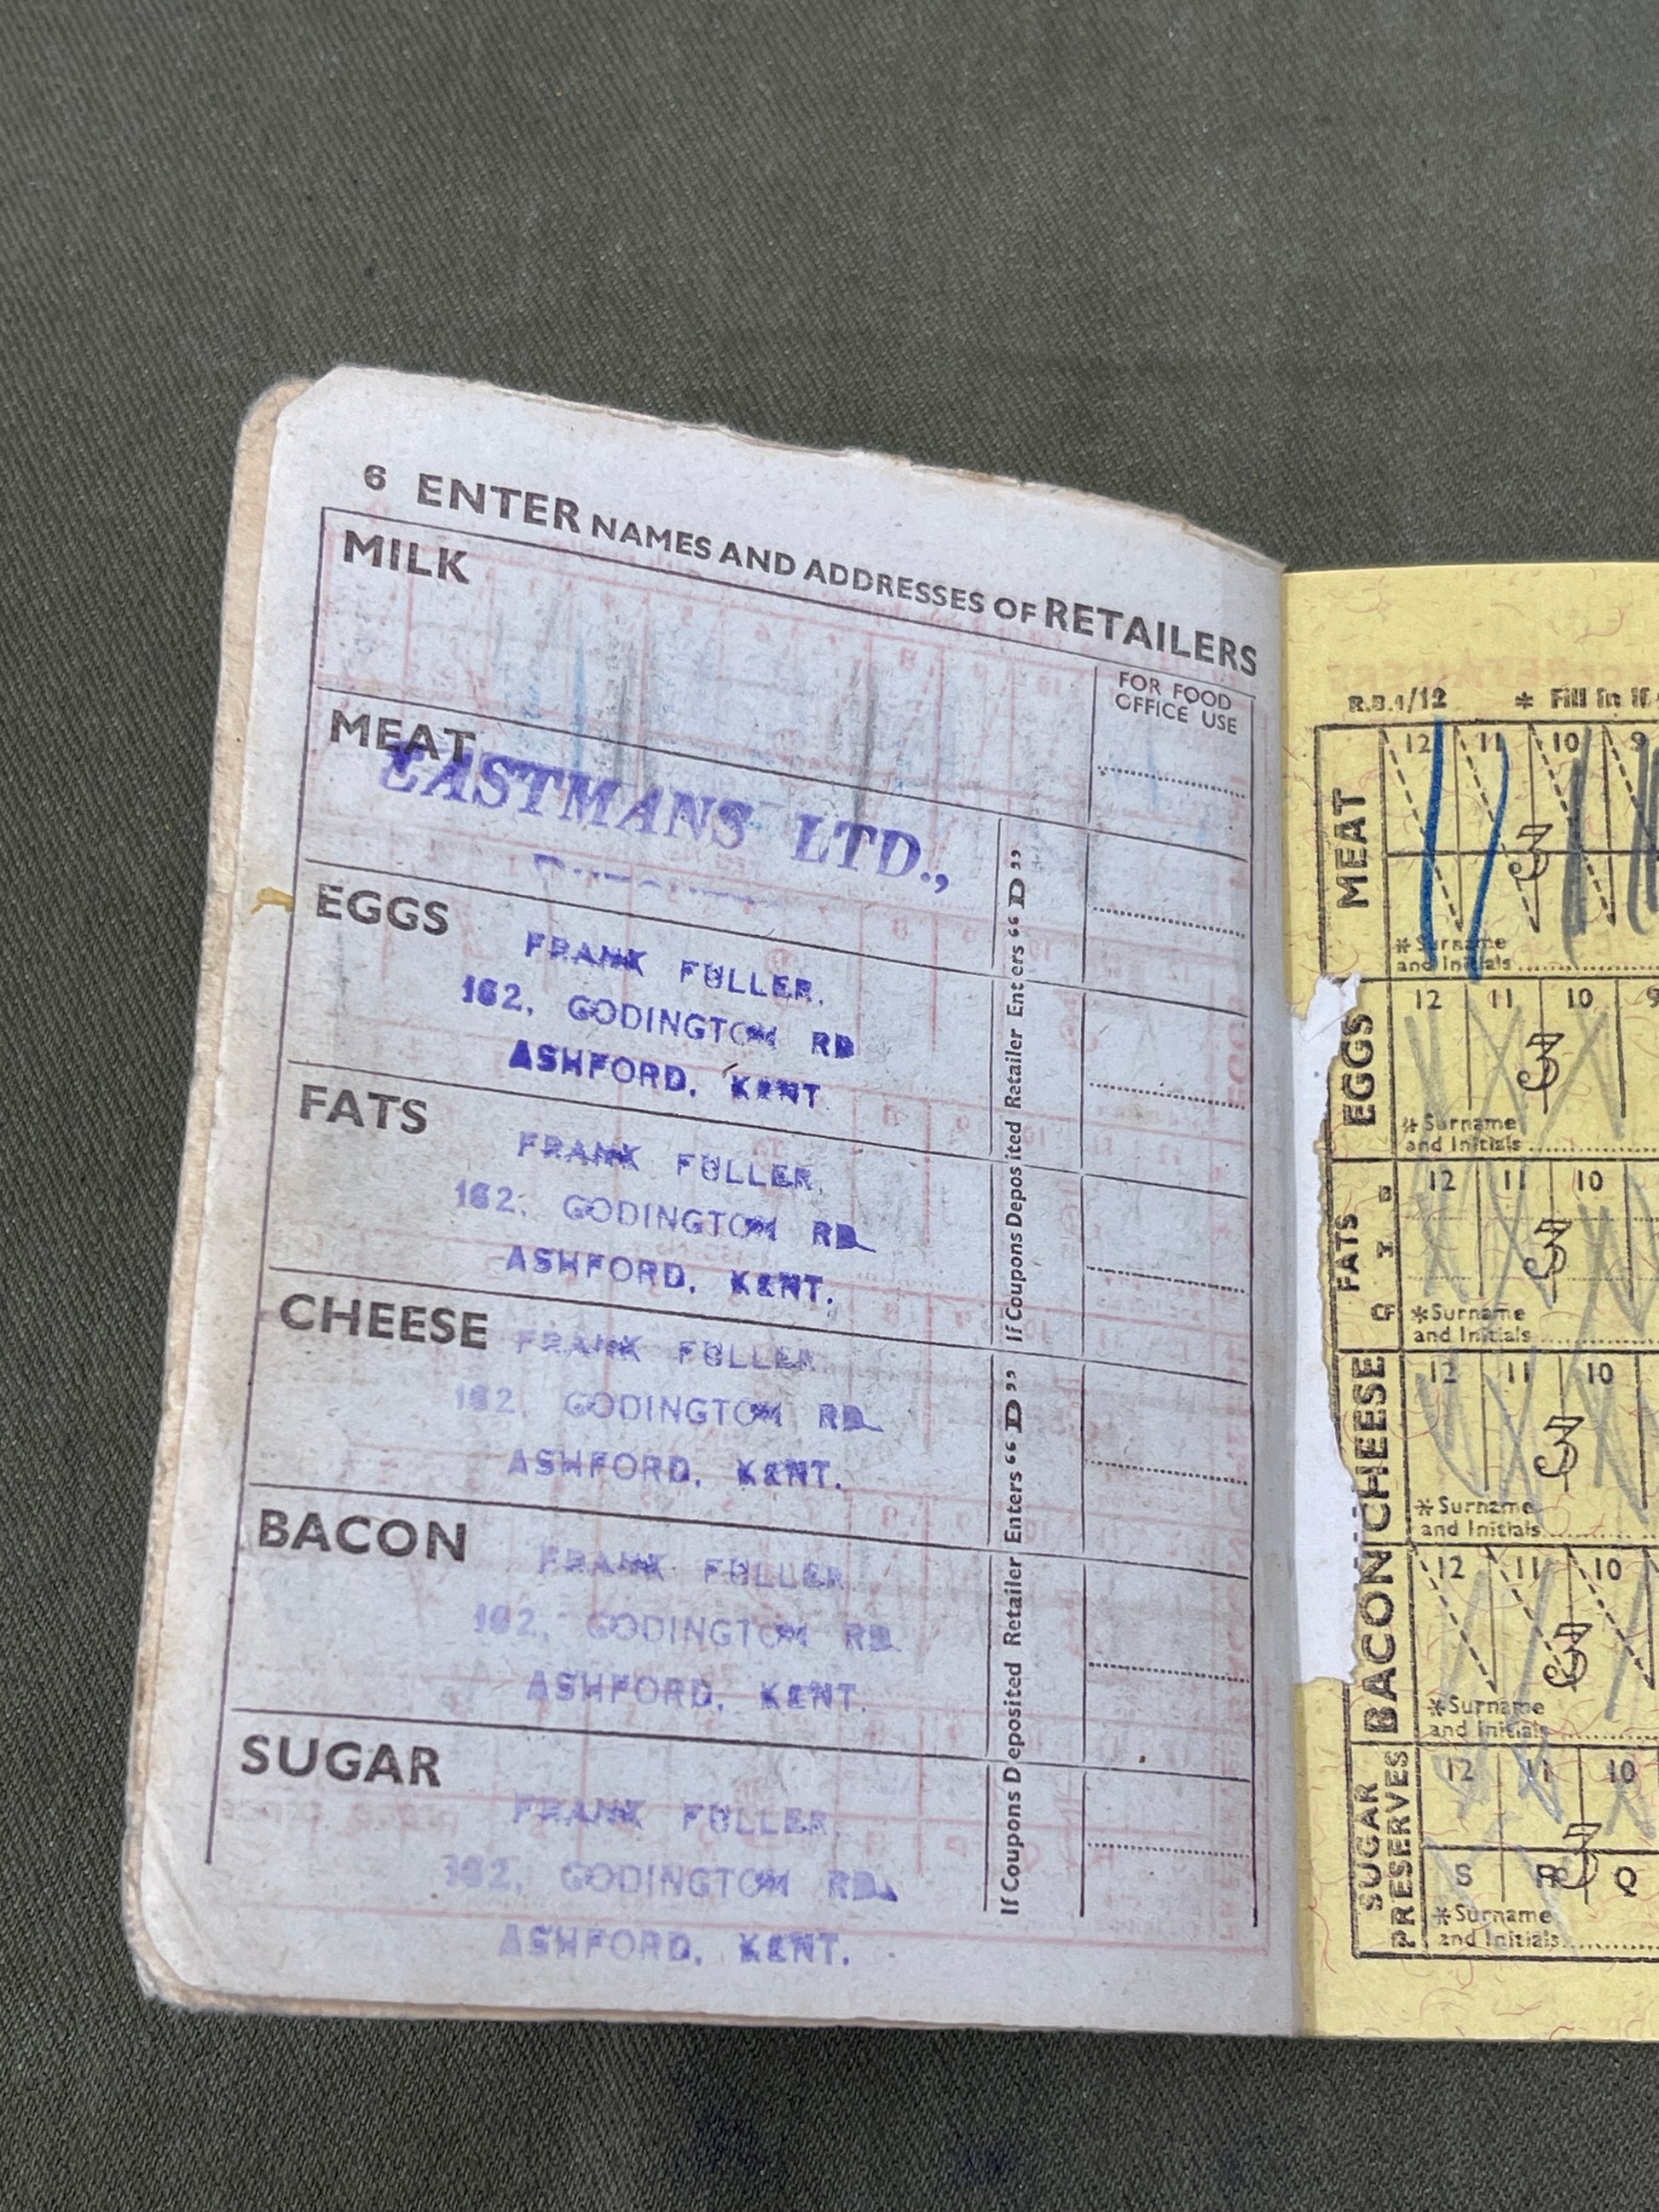 6 ENTER NAMES AND ADDRESSES OF RETAILERS
MILK
FOR FOOD
OFFICE USE
MEAT
EASTMANS LTD.,
EGGS
FRANK FULLER.
162, GODINGTON RD
ASHFORD, KENT
FATS
FRANK FULLER.
162, GODINGTON RD
ASHFORD, KENT.
If Coupons Deposited Retailer Enters "D"
CHEESE
FRANK FULLER
162, GODINGTON RD
ASHFORD, KENT.
BACON
FRANK FULLER
162, GODINGTON RD
ASHFORD, KENT.
SUGAR
FRANK FULLER.
162, GODINGTON RD.
ASHFORD, KENT.
If Coupons Deposited Retailer Enters "D"
R.B.1/12 * Fill in if
MEAT
12 11 10 9
3
* Surname
and Initials
EGGS
12 11 10 9
3
* Surname
and Initials
FATS
12 11 10
3
* Surname
and Initials
CHEESE
12 11 10
3
* Surname
and Initials
BACON
12 11 10
3
* Surname
and Initials
SUGAR
PRESERVES
12 11 10
3
S R Q
* Surname
and Initials